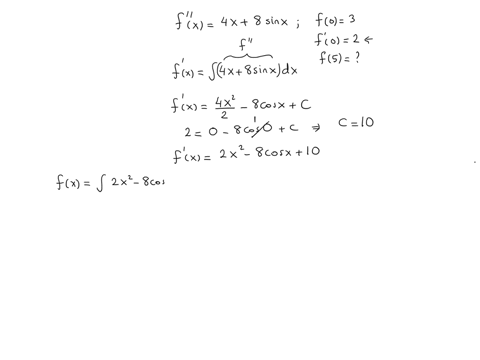 f''(x) = 4x + 8 sinx ; f(0) = 3
f'(0) = 2 ←
f(5) = ?
f''
f'(x) = ∫(4x + 8sinx)dx
f'(x) = 4x²/2 - 8cosx + C
2 = 0 - 8cos0 1 + C ⇒ C = 10
f'(x) = 2x² - 8cosx + 10
f(x) = ∫ 2x² - 8cos